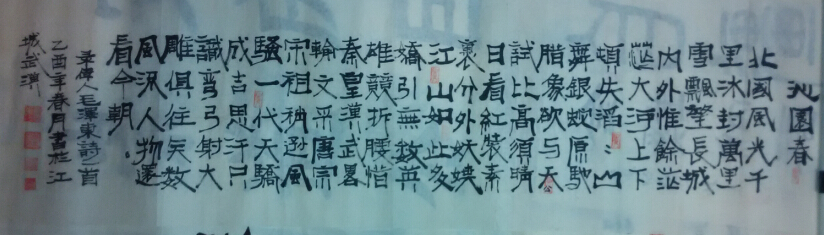 沁園春
北國風光千
里冰封萬里
雪飄望長城
内外惟餘莽
莽大河上下
頓失滔〻山
舞銀蛇原馳
象欲与天
公
試比高須晴
日看紅裝素
裹分外妖娆
江山如此多
嬌引無數英
雄競折腰惜
秦皇漢武畧
輸文采唐宗
宋祖稍遜風
騷一代天驕
成吉思汗只
識彎弓射大
雕俱往矣數
風流人物還
看今朝
录偉人毛澤東詩一首
乙酉年春月書於江
城武漢